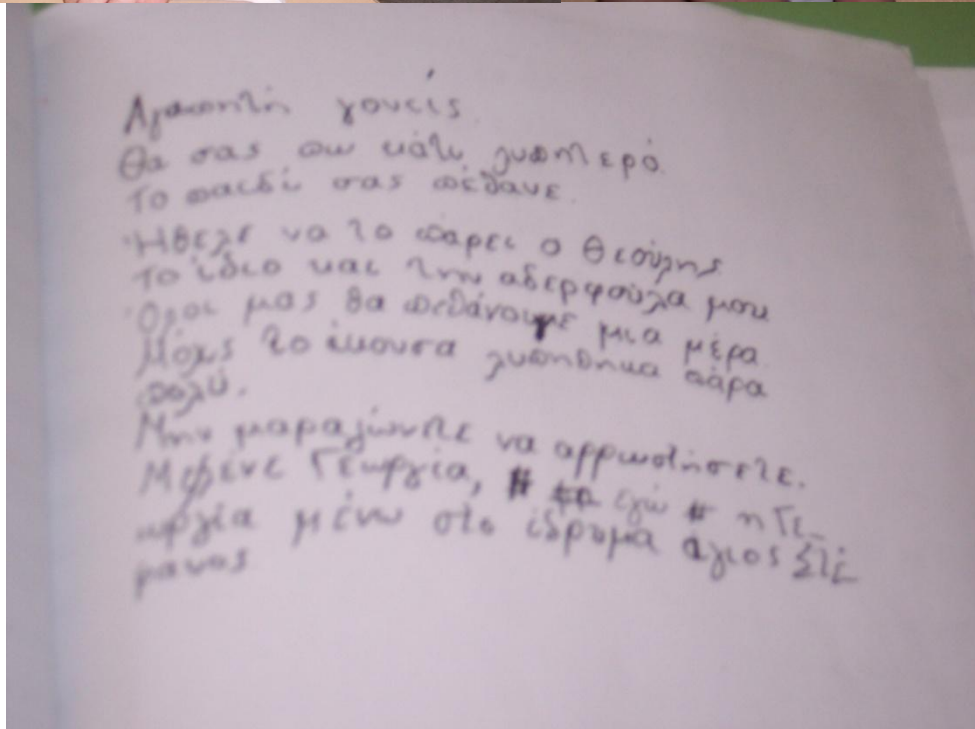 Αγαπητή γονείς
Θα σας πω κάτι λυπητερό.
Το παιδί σας πέθανε.
Ήθελε να το πάρει ο Θεούλης
Το ίδιο και την αδερφούλα μου
Όλοι μας θα πεθάνουμε μια μέρα
Μόλις το άκουσα λυπήθηκα πάρα
πολύ.
Μην μαραζώνετε να αρρωστήσετε.
Με λένε Γεωργία, εγώ η Γε-
ωργία μένω στο ίδρυμα άγιος Στέ
φανος